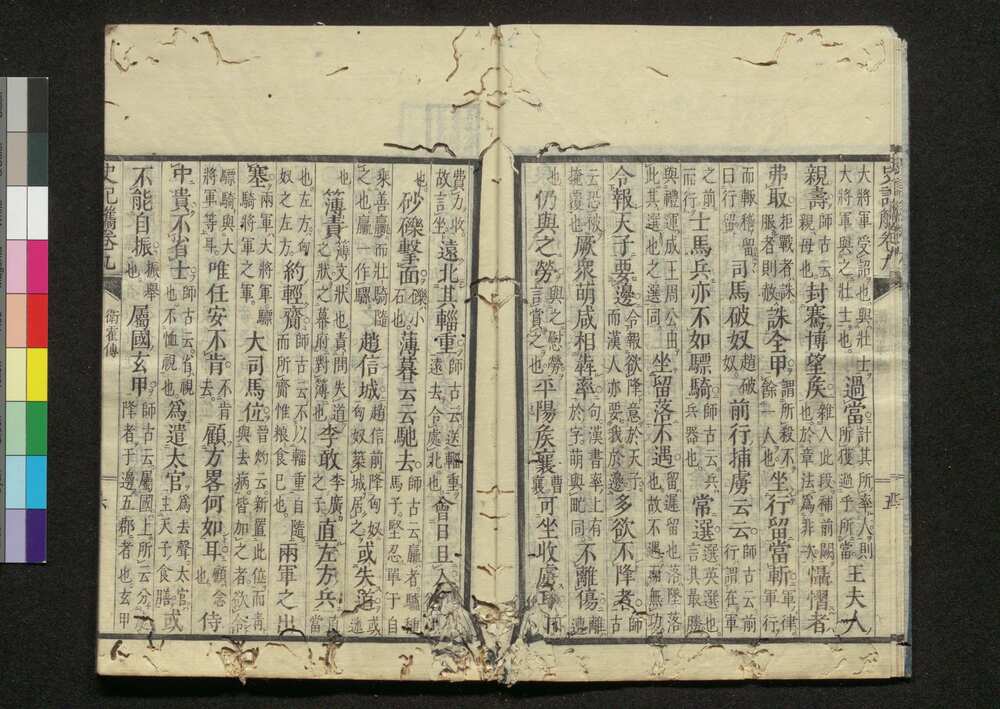 大將軍受詔也與壯士
大將軍與之壯士也
過當
計其所率人則
所獲過乎所當
王夫人
親壽
師古云
親母也
封騫博望矦
雜人此段補前闕
也於章法爲非大
懾慴者
弗取
拒戰者誅
服者則赦
誅全甲
謂所殺不
餘一人也
坐行留當斬
軍律
軍行
而輒稽留
曰行留
司馬破奴
趙破
奴
前行捕虜云云
師古云前
行謂在軍
之前
而行
士馬兵亦不如驃騎
師古云兵
兵器也
常選
選選英也
言其最勝
與禮運成王周公由
此其選也之選同
坐留落不遇
留遲留也落墜落
也故不遇無功
令報天子要邊
令報欲降意於天子
而漢人亦要我於邊
多欲不降者
師古
云恐被
掩覆也
厥衆萌咸相犇率
一句漢書率上有
於字萌與甿同
不離傷
離
遭
仍與之勞
與之慰勞
言賞之也
平陽矦襄
曹
襄
可坐收虜耳
費力收
故言坐
遠北其輜重
師古云送輜重
遠去令處北也
會日且入
也
砂礫擊面
礫小
石也
薄暮云云馳去
師古云驘者驢種
馬子堅忍單于自
乘善驘而壯騎隨
之也驘一作騾
趙信城
趙信前降匈奴
匈奴築城居之
或失道
或
迷
也
簿責
簿文狀也責問失道
之狀之幕府對簿也
李敢
李廣
之子
直左方兵
直
當
也左方匈
奴之左方
約輕齎
師古云不以輜重自隨
而所齎惟粮食已也
兩軍之出
塞
兩軍大將軍驃
騎將軍之軍
大司馬位
晉灼云新置此位而靑
與去病皆加之者欲令
驃騎與大
將軍等耳
唯任安不肯
不肯
去
顧方畧何如耳
顧念
也
侍
中貴不省士
師古云省視
也不恤視也
爲遣太官
爲去聲太官
主天子食膳
或
不能自振
振舉
也
屬國玄甲
師古云屬國上所云分
降者于邊五郡者也玄甲
衛霍傳
六